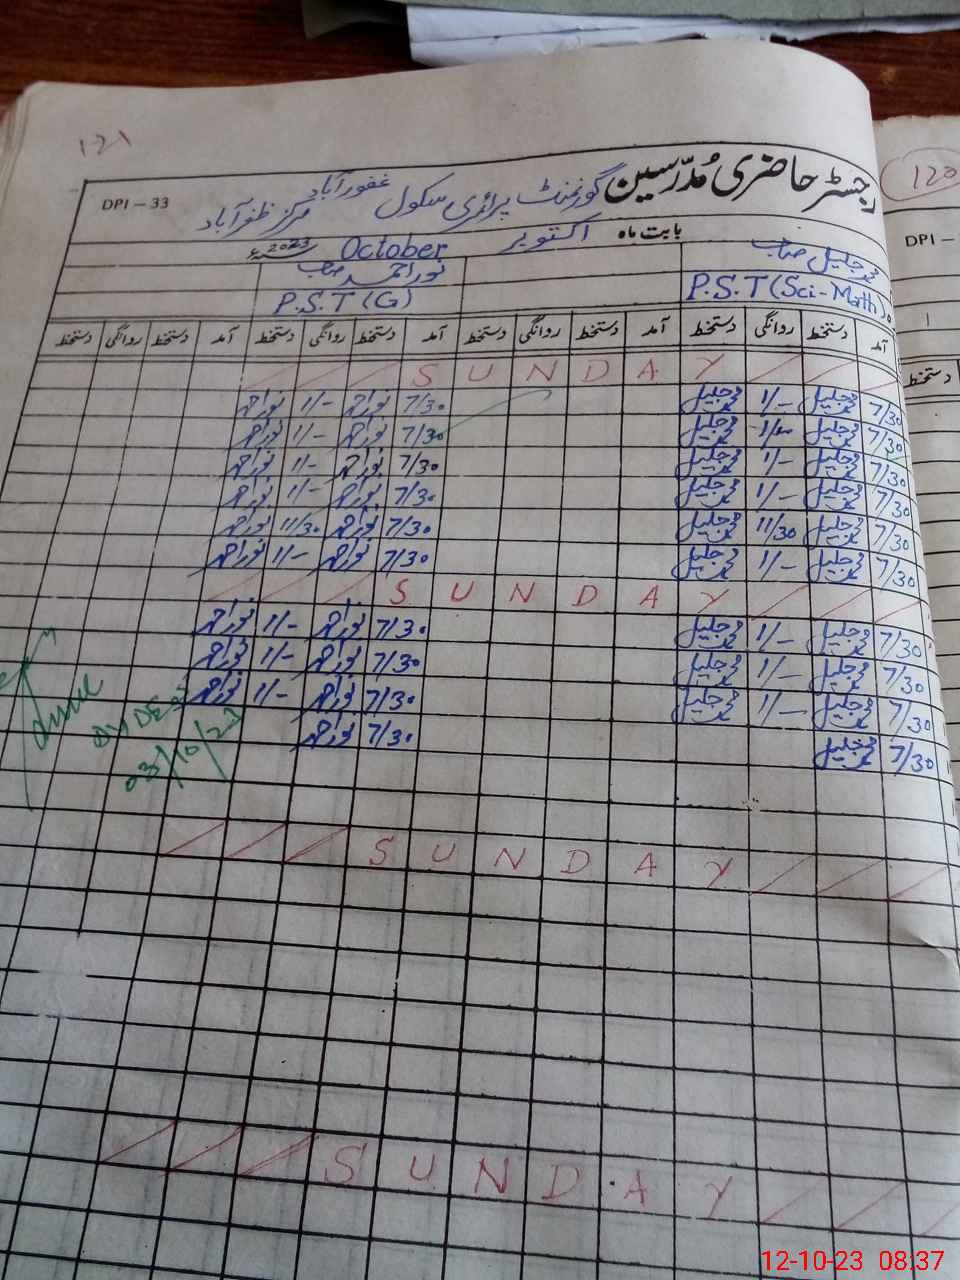 ۱۲۱
120
DPI – 33
رجسٹر حاضری مُدرّسین گورنمنٹ پرائمری سکول غفورآباد مرکز ظفرآباد
DPI –
بابت ماہ اکتوبر October 2023ء
محمد جلیل صاحب نور احمد صاحب
P.S.T (Sci-Math). P.S.T (G)
آمد دستخط روانگی دستخط آمد دستخط روانگی دستخط آمد دستخط روانگی دستخط آمد دستخط روانگی دستخط
دستخط
S U N D A Y
7/30 محمد جلیل 1/- محمد جلیل 7/30 نوراحمد 1/- نوراحمد
7/30 محمد جلیل 1/- محمد جلیل 7/30 نوراحمد 1/- نوراحمد
7/30 محمد جلیل 1/- محمد جلیل 7/30 نوراحمد 1/- نوراحمد
7/30 محمد جلیل 1/- محمد جلیل 7/30 نوراحمد 1/- نوراحمد
7/30 محمد جلیل 11/30 محمد جلیل 7/30 نوراحمد 11/30 نوراحمد
7/30 محمد جلیل 1/- محمد جلیل 7/30 نوراحمد 1/- نوراحمد
S U N D A Y
7/30 محمد جلیل 1/- محمد جلیل 7/30 نوراحمد 1/- نوراحمد
7/30 محمد جلیل 1/- محمد جلیل 7/30 نوراحمد 1/- نوراحمد
7/30 محمد جلیل 1/- محمد جلیل 7/30 نوراحمد 1/- نوراحمد
7/30 محمد جلیل 7/30 نوراحمد
03/10/23
S U N D A Y
S U N D A Y
12-10-23 08:37